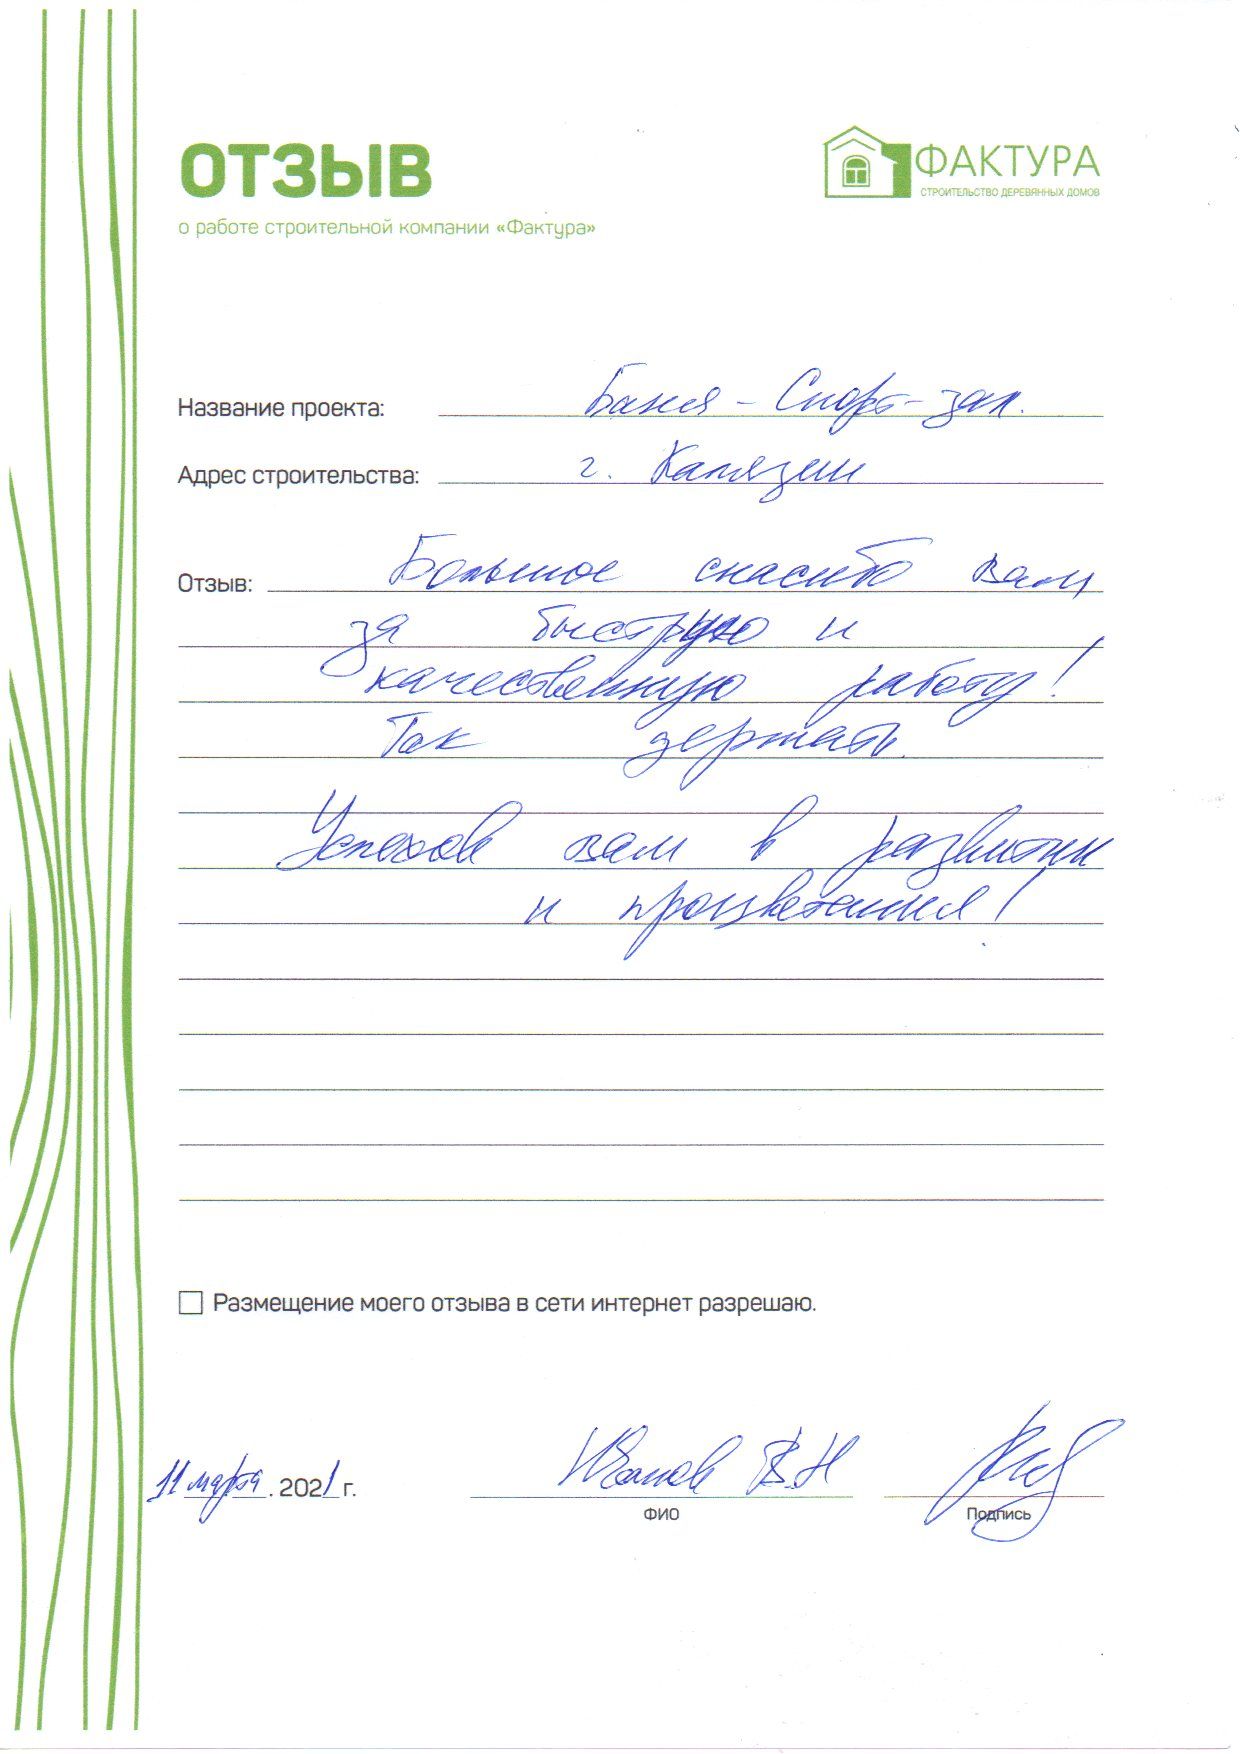 ОТЗЫВ
о работе строительной компании «Фактура»
ФАКТУРА
СТРОИТЕЛЬСТВО ДЕРЕВЯННЫХ ДОМОВ
Название проекта: Баня - Спорт-зал.
Адрес строительства: г. Калязин
Отзыв: Большое спасибо вам
за быструю и
качественную работу!
Так держать.
Успехов вам в развитии
и процветания!
Размещение моего отзыва в сети интернет разрешаю.
11 марта . 2021 г. Иванов В.Н
ФИО Подпись